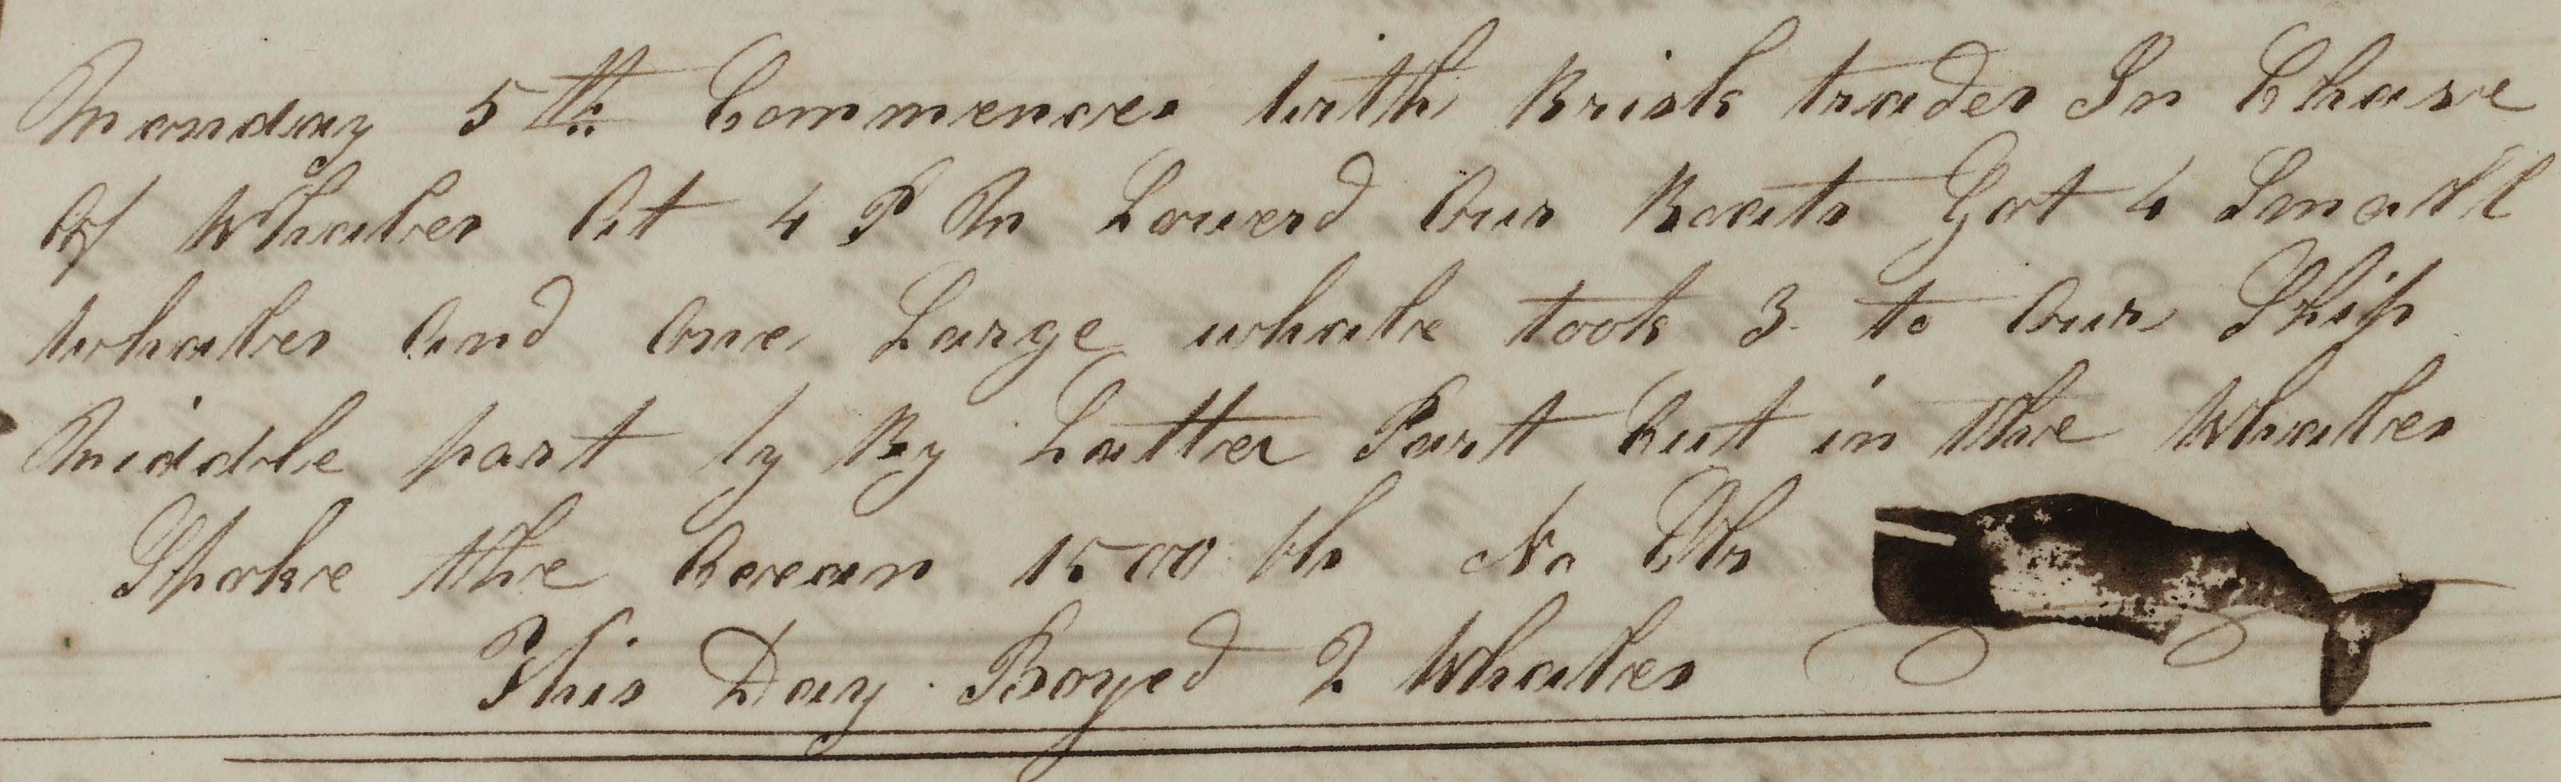 Monday 5th Commences with Brisk trades In Chase
Of Whales At 4 P M Lowerd Our Boats Got 4 Small
whales And One Large whale took 3 to Our Ship
Middle part ly By Latter Part Cut in the Whales
Spoke the Ocean 1500 bls No Obs
This Day Boyed 2 Whales